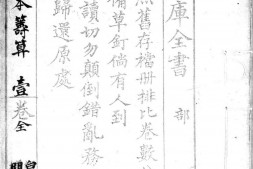 庫全書
部
照舊存檔冊排比卷數
補草釘倘有人到
讀切勿顛倒錯亂務
歸還原處
本籌算 壹卷 全